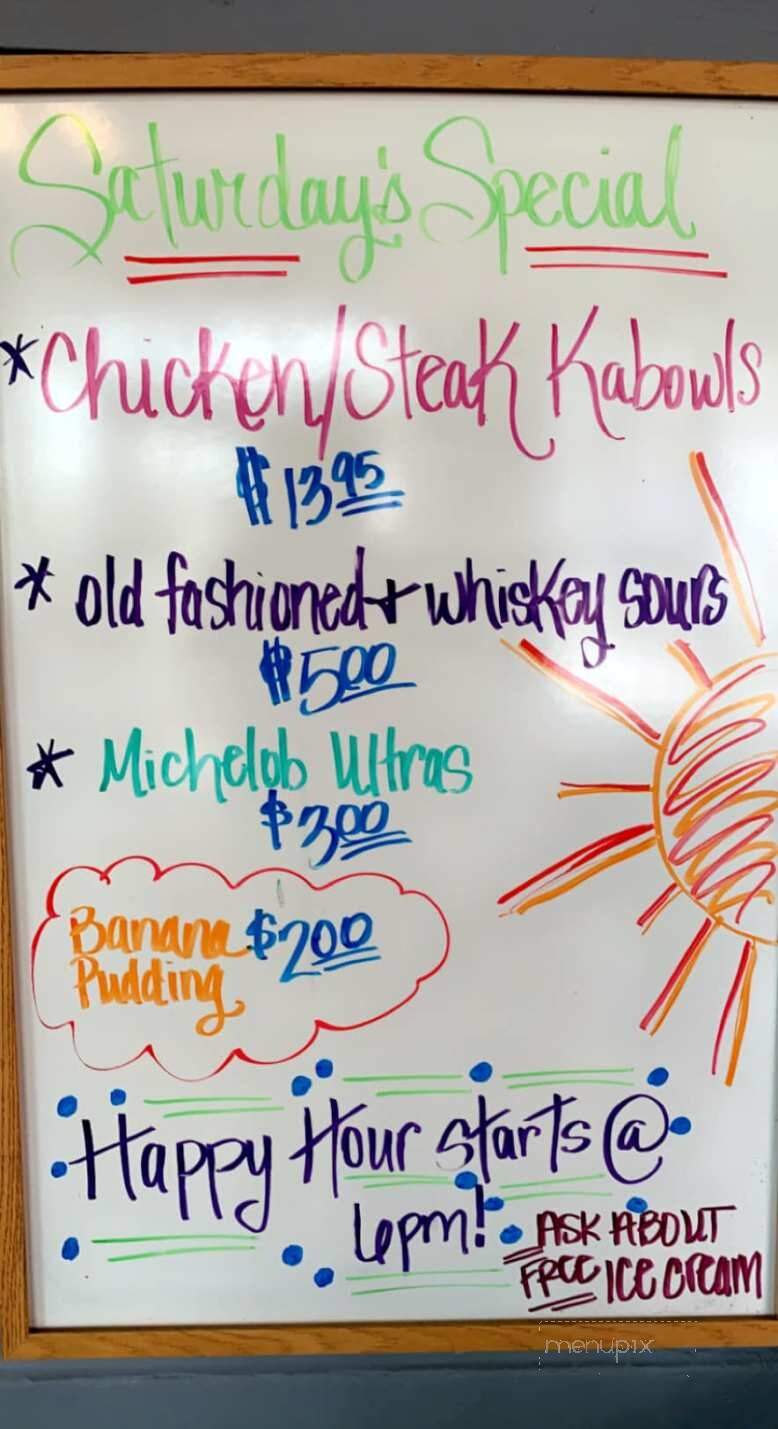 Saturday's Special
*Chicken/Steak Kabowls
$13.95
* old fashioned + whiskey sours
$5.00
* Michelob Ultras
$3.00
Banana $2.00
Pudding
Happy Hour starts @
6pm!
ASK ABOUT
FREE ICE CREAM
menupix